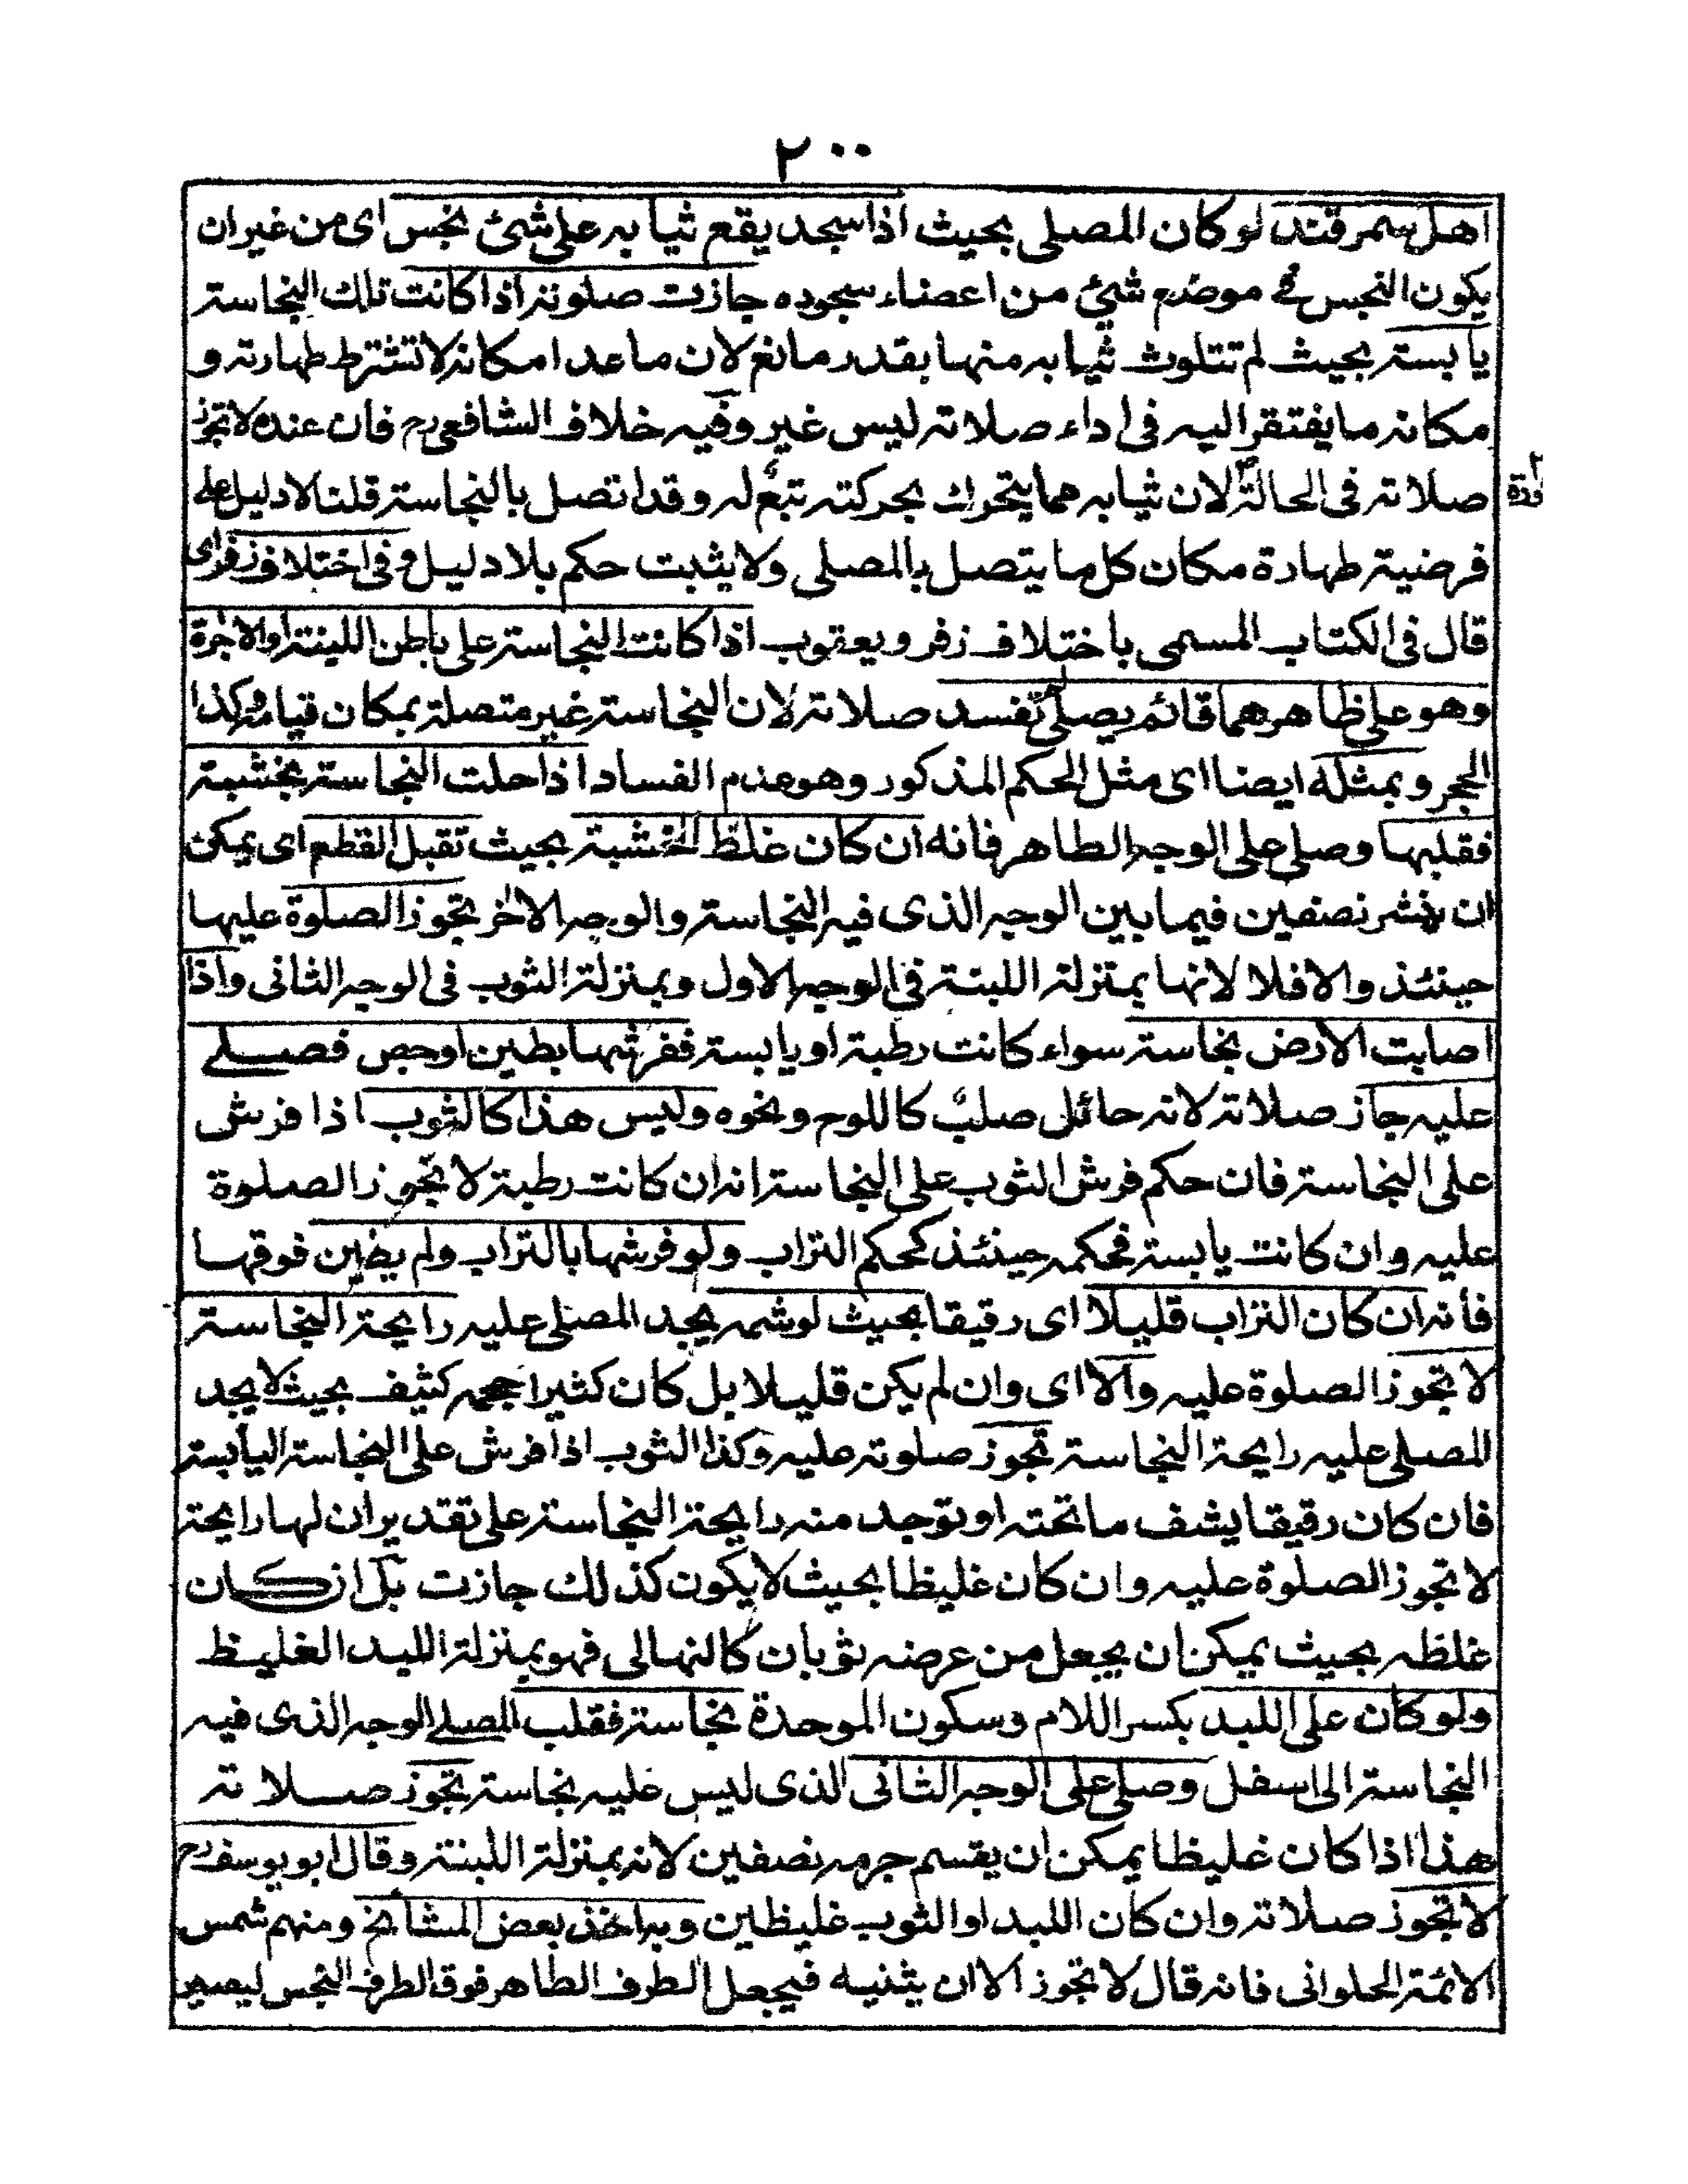 ٢٠٠
اهل سمرقند لو كان المصلى بحيث اذا سجد يقع ثيابه على شئ نجس اى من غير ان
يكون النجس فى موضع شئ من اعضاء سجوده جازت صلوته اذا كانت تلك النجاسة
يابسة بحيث لم تتلوث ثيابه منها بقدر مانع لان ما عدا مكانه لا تشترط طهارته و
مكانه ما يفتقر اليه فى اداء صلاته ليس غير وفيه خلاف الشافعى رح فان عنده لا تجوز
صلاته فى الحالة لان ثيابه مما يتحرك بحركته تبع له وقد اتصل بالنجاسة قلنا لا دليل على
فرضية طهارة مكان كل ما يتصل بالمصلى ولا يثبت حكم بلا دليل وفى اختلاف زفر اى
قال فى الكتاب المسمى باختلاف زفر ويعقوب اذا كانت النجاسة على باطن اللبنة او الاجرة
وهو على ظاهرهما قائم يصلى تفسد صلاته لان النجاسة غير متصلة بمكان قيامه وكذا
الحجر وبمثله ايضا اى مثل الحكم المذكور وهو عدم الفساد اذا حلت النجاسة بخشبة
فقلبها وصلى على الوجه الطاهر فانه ان كان غلظ الخشبة بحيث تقبل القطع اى يمكن
ان ينشر نصفين فيما بين الوجه الذى فيه النجاسة والوجه الاخر تجوز الصلوة عليها
حينئذ والا فلا لانها بمنزلة اللبنة فى الوجه الاول وبمنزلة الثوب فى الوجه الثانى واذا
اصابت الارض نجاسة سواء كانت رطبة او يابسة ففرشها بطين او جص فصلى
عليه جاز صلاته لانه حائل صلب كاللوح ونحوه وليس هذا كالثوب اذا فرش
على النجاسة فان حكم فرش الثوب على النجاسة انه ان كانت رطبة لا تجوز الصلوة
عليه وان كانت يابسة فحكمه حينئذ كحكم التراب ولو فرشها بالتراب ولم يطين فوقها
فانه ان كان التراب قليلا اى رقيقا بحيث لو شمه يجد المصلى عليه رايحة النجاسة
لا تجوز الصلوة عليه والا اى وان لم يكن قليلا بل كان كثيرا حجمه كثيف بحيث لا يجد
المصلى عليه رايحة النجاسة تجوز صلوته عليه وكذا الثوب اذا فرش على النجاسة اليابسة
فان كان رقيقا يشف ما تحته او توجد منه رايحة النجاسة على تقدير ان لها رايحة
لا تجوز الصلوة عليه وان كان غليظا بحيث لا يكون كذلك جازت بل ان كان
غلظه بحيث يمكن ان يجعل من عرضه ثوبان كالنهالى فهو بمنزلة اللبد الغليظ
ولو كان على اللبد بكسر اللام وسكون الموحدة نجاسة فقلب المصلى الوجه الذى فيه
النجاسة الى اسفل وصلى على الوجه الثانى الذى ليس عليه نجاسة تجوز صلاته
هذا اذا كان غليظا يمكن ان يقسم جرمه نصفين لانه بمنزلة اللبنة وقال ابو يوسف رح
لا تجوز صلاته وان كان اللبد او الثوب غليظين وبه اخذ بعض المشائخ ومنهم شمس
الائمة الحلوانى فانه قال لا تجوز الا ان يثنيه فيجعل الطرف الطاهر فوق الطرف النجس ليصير